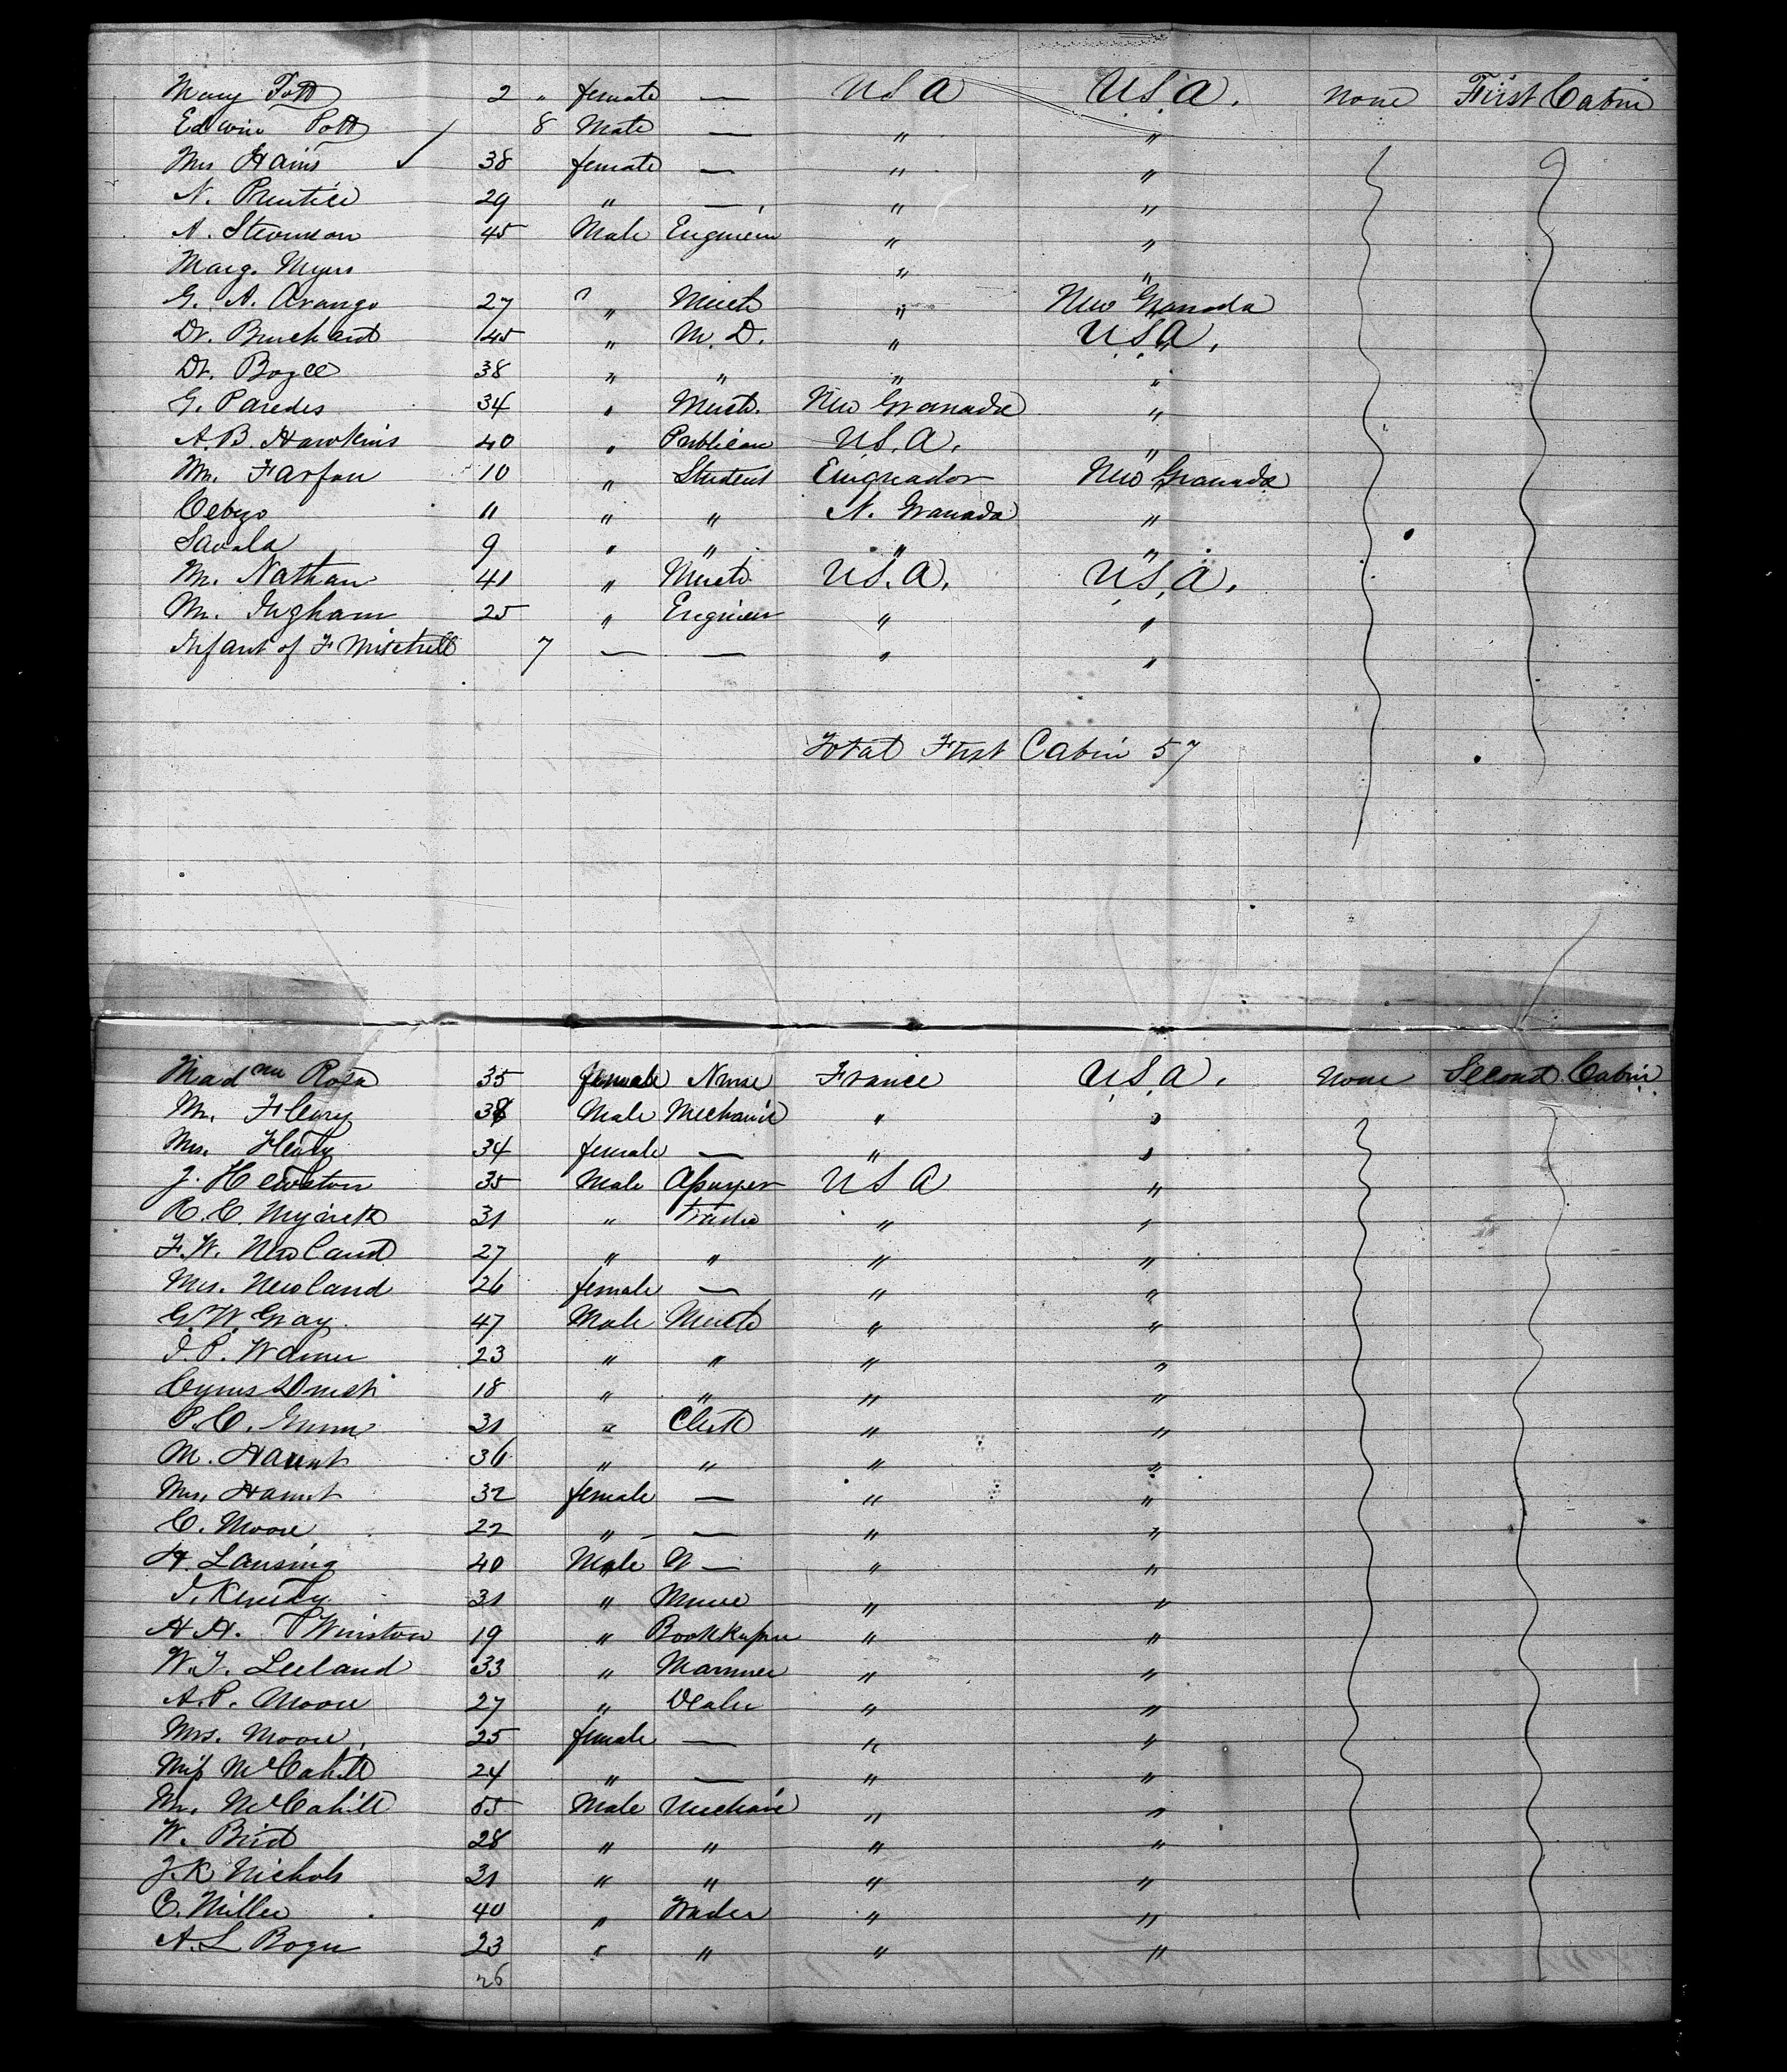 Mary Pott 2 " female — USA U.S.A. none First Cabin
Edwin Pott 8 Male — " "
Mrs Hains 38 female — " "
N. Prentice 29 " — " "
A. Stevenson 45 Male Engineer " "
Marg. Myers " "
G. A. Arango 27 " Merch " New Granada
Dr. Burchard 45 " M.D. " U.S.A.
Dr. Boyce 38 " " " "
G. Paredes 34 " Merch. New Granada "
A.B. Hawkins 40 " Publican U.S.A. "
Mr. Farfan 10 " Student New Granada
11 " " N. Granada "
Savala 9 " " " "
Mr. Nathan 41 " Merch. U.S.A. U.S.A.
Mr. Ingham 25 " Engineer " "
Infant of F Mitchell 7 — — " "
Total First Cabin 57
Madme Rosa 35 female Nurse France U.S.A. None Second Cabin
Mr. Fleury 38 Male Mechanic " "
Mrs. Fleury 34 female — " "
J. Hewston 35 Male Assayer USA "
R. C. 31 " Trader " "
F. W. Newland 27 " " " "
Mrs. Newland 26 female — " "
G. W. Gray 47 Male Merch " "
J. P. Warner 23 " " " "
Cyrus 18 " " " "
P. C. Gunn 31 " Clerk " "
M. Haunt 36 " " " "
Mrs. Haunt 32 female — " "
C. Moore 22 " — " "
H. Lansing 40 Male — " "
31 " Miner " "
H. H. Winston 19 " Bookkeeper " "
W. J. Leeland 33 " Mariner " "
A. P. Moore 27 " Dealer " "
Mrs. Moore 25 female — " "
Miss McCahill 24 " — " "
Mr. McCahill 55 Male Mechanic " "
W. Bird 28 " " " "
J. K Nichols 31 " " " "
C. Miller 40 " Trader " "
A. L Bogu 23 " " " "
26